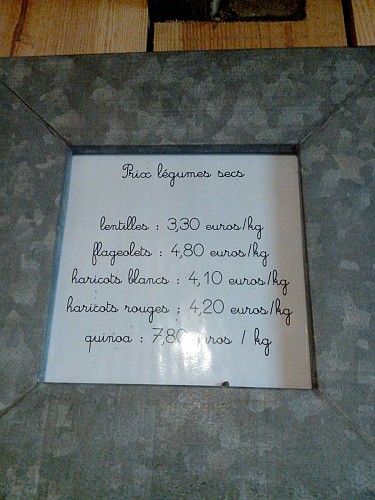 Prix légumes secs
lentilles : 3,30 euros/kg
flageolets : 4,80 euros/kg
haricots blancs : 4,10 euros/kg
haricots rouges : 4,20 euros/kg
quinoa : 7,80 euros / kg